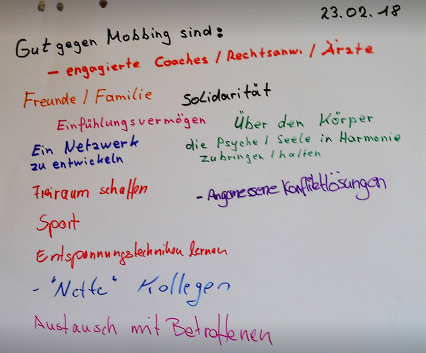 23.02.18
Gut gegen Mobbing sind:
- engagierte Coaches / Rechtsanw. / Ärzte
Freunde / Familie
Solidarität
Einfühlungsvermögen
Über den Körper
die Psyche / Seele in Harmonie
zubringen / halten
Ein Netzwerk
zu entwickeln
Freiraum schaffen
- Angemessene Konfliktlösungen
Sport
Entspannungstechniken lernen
- "Nette" Kollegen
Austausch mit Betroffenen